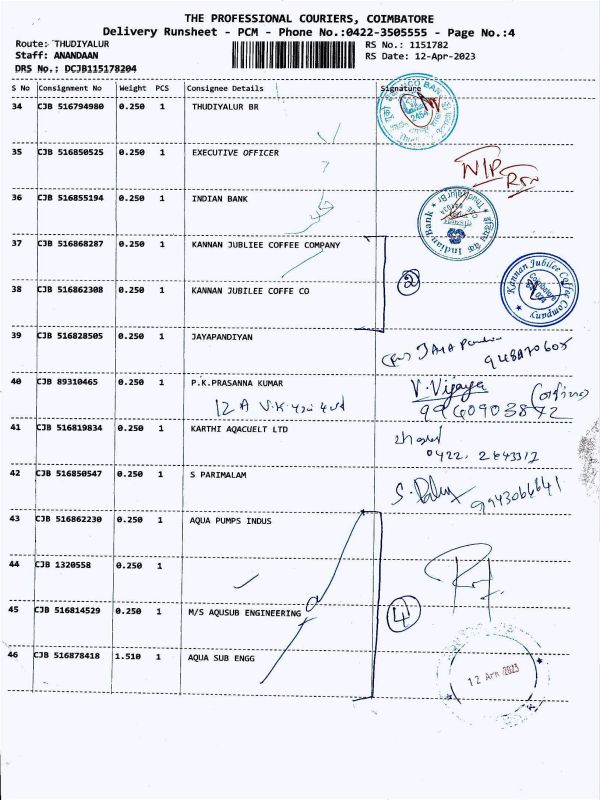 THE PROFESSIONAL COURIERS, COIMBATORE
Delivery Runsheet - PCM - Phone No.:0422-3505555 - Page No.:4
Route: THUDIYALUR RS No.: 1151782
Staff: ANANDAAN RS Date: 12-Apr-2023
DRS No.: DCJB115178204
S No Consignment No Weight PCS Consignee Details Signature
34 CJB 516794980 0.250 1 THUDIYALUR BR
35 CJB 516850525 0.250 1 EXECUTIVE OFFICER
N/P
36 CJB 516855194 0.250 1 INDIAN BANK
Indian Bank
37 CJB 516868287 0.250 1 KANNAN JUBLIEE COFFEE COMPANY
2
Kannan Jubilee Coffee Company
38 CJB 516862308 0.250 1 KANNAN JUBILEE COFFE CO
39 CJB 516828505 0.250 1 JAYAPANDIYAN
40 CJB 89310465 0.250 1 P.K.PRASANNA KUMAR V.Vijaya
12 A V.K. 9940903872
41 CJB 516819834 0.250 1 KARTHI AQACUELT LTD
0422. 2643317
42 CJB 516850547 0.250 1 S PARIMALAM
9943066641
43 CJB 516862230 0.250 1 AQUA PUMPS INDUS
44 CJB 1320558 0.250 1
45 CJB 516814529 0.250 1 M/S AQUSUB ENGINEERING 4
46 CJB 516878418 1.510 1 AQUA SUB ENGG
12 APR 2023